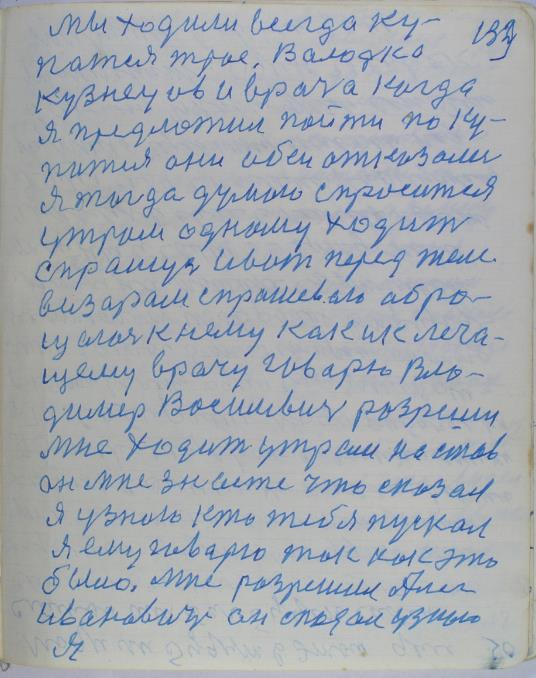 133
мы ходили всегда ку-
патся трое. Валодка
кузнецов и врач а когда
я предложил пойти по ку-
патся они обеи отказали
я тогда думаю спросится
утром одному ходит
спрашуя и вот перед тем.
визарам спрашевал обро-
щалоя к нему как и к леча-
щему врачу говарю Вло-
димер Восиливич розреши
мне ходит утрам на став
он мне знаете что сказал
я узнаю кто тебя пускал
я ему говарю так как это
было. мне розрешил Алег
Иванович он сказал узнаю
Я